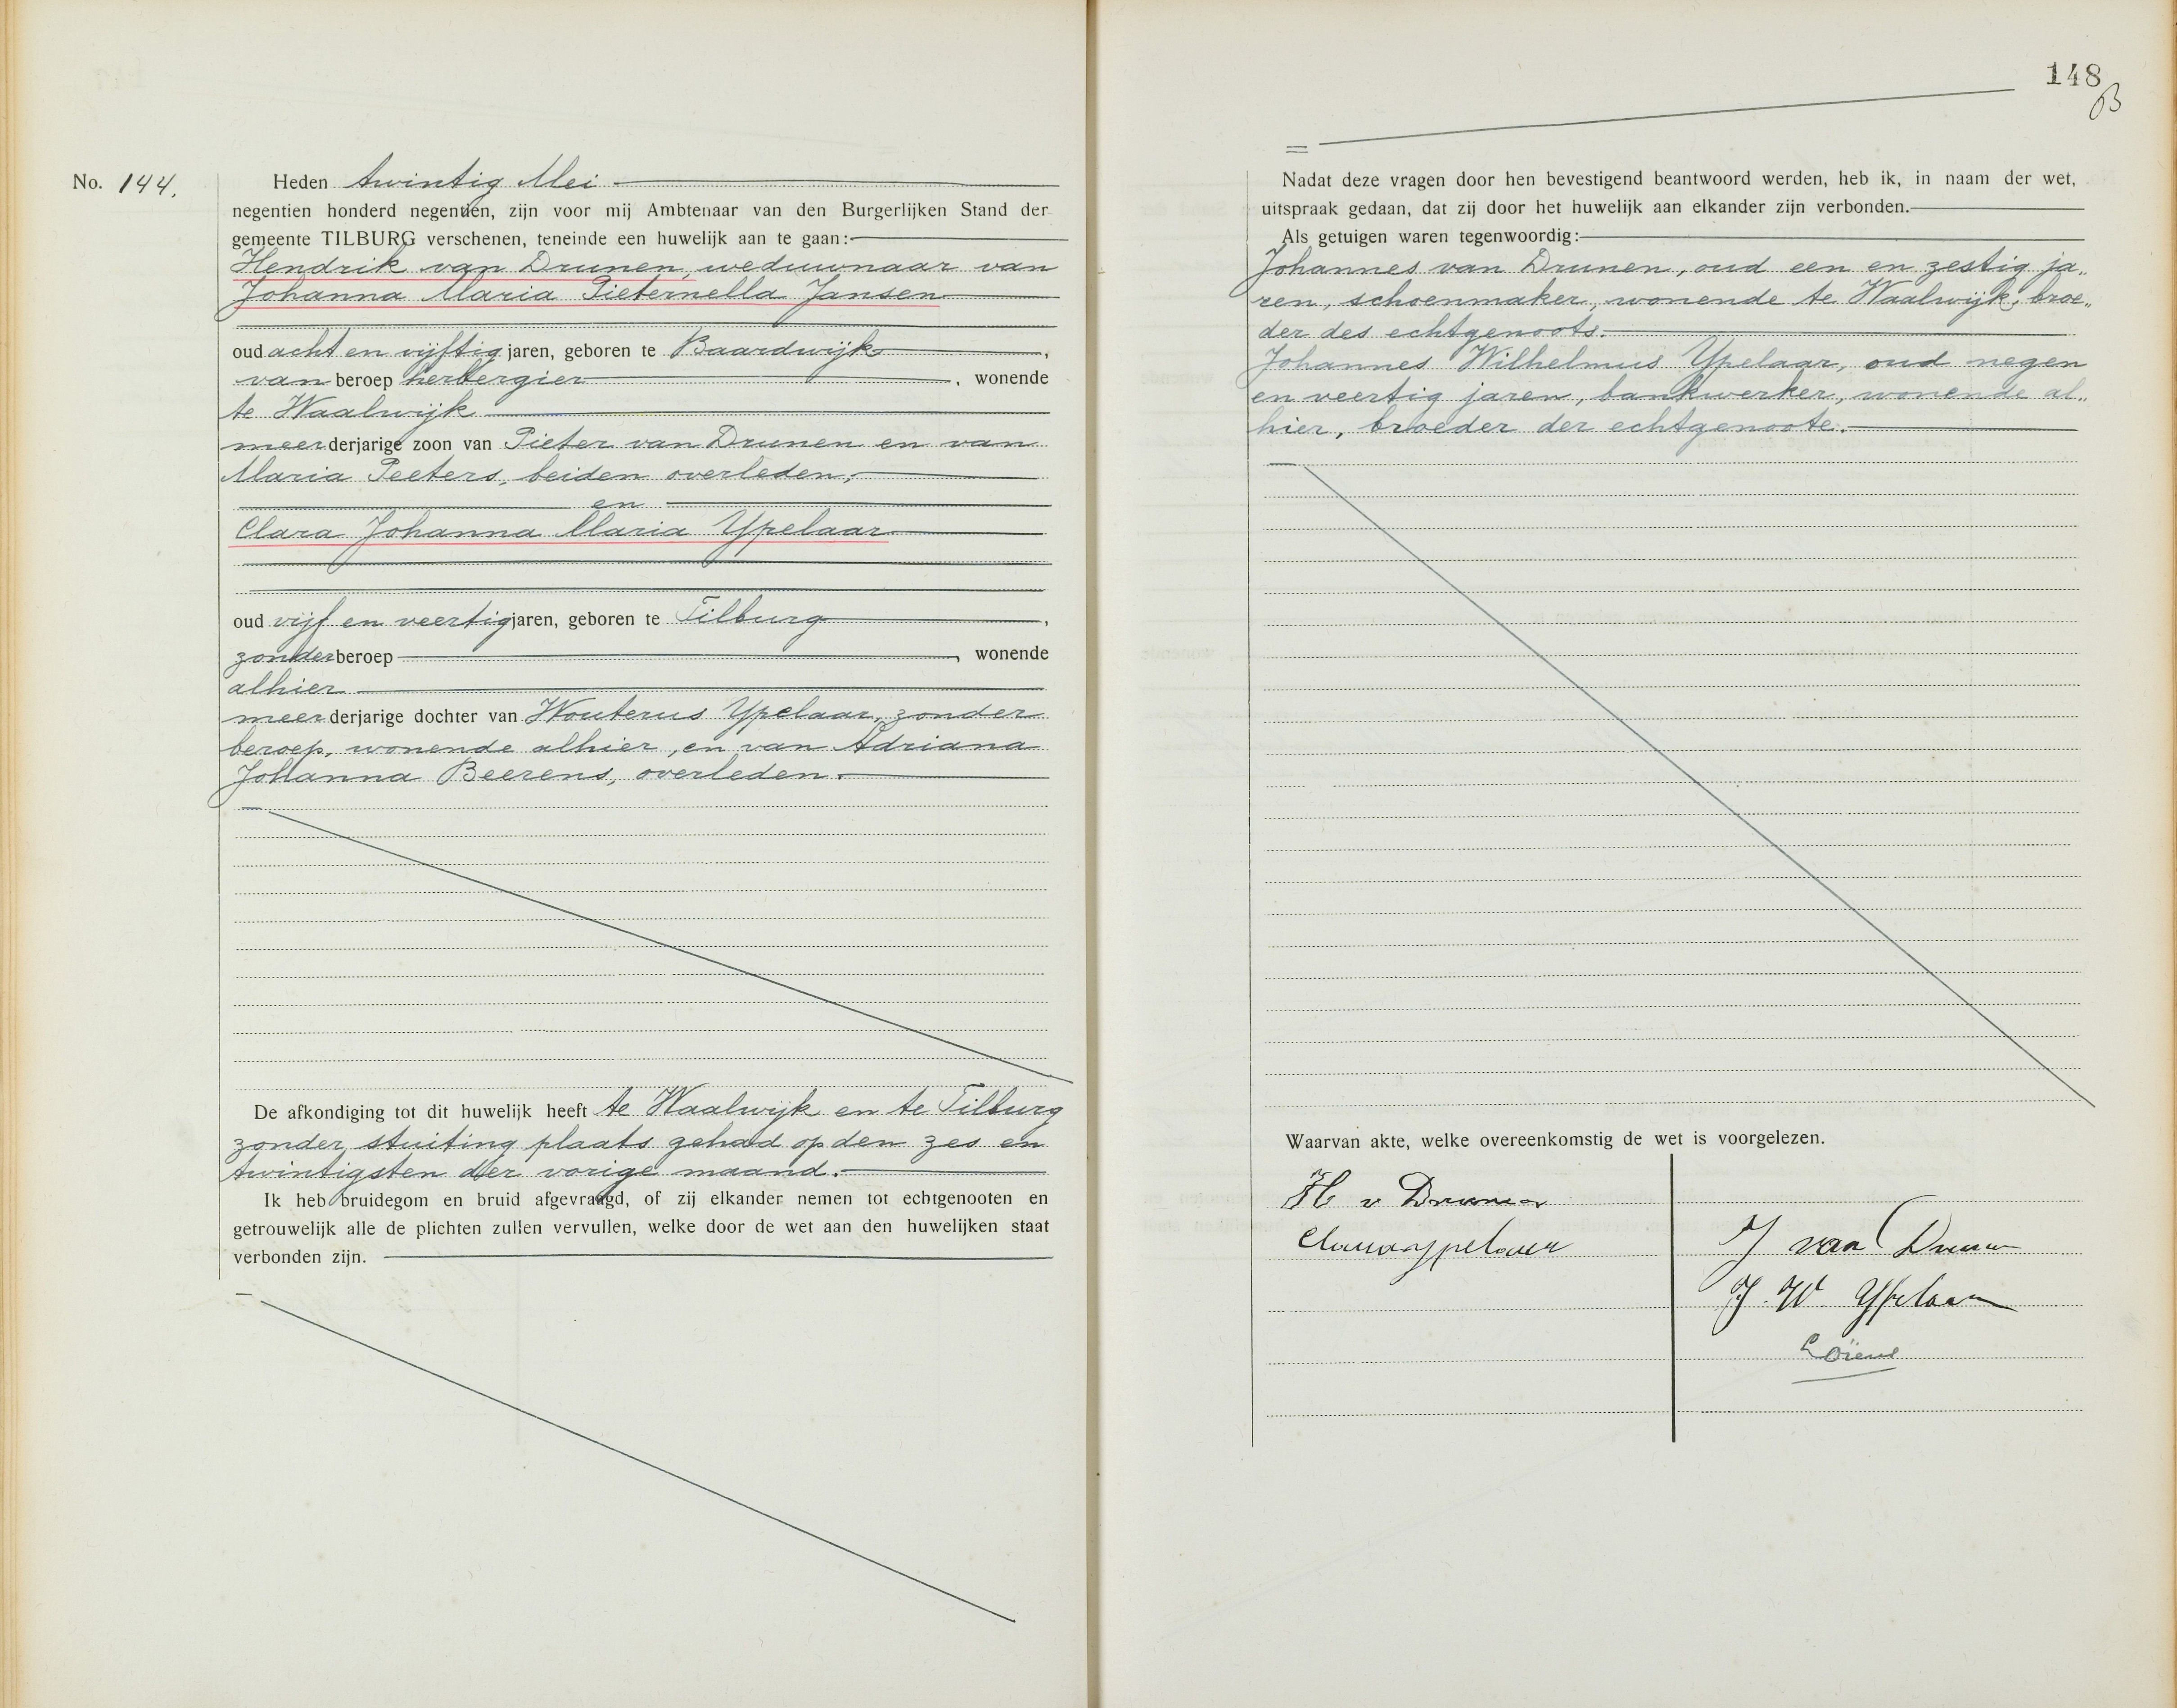 No. 144.
Heden twintig Mei
negentien honderd negentien, zijn voor mij Ambtenaar van den Burgerlijken Stand der
gemeente TILBURG verschenen, teneinde een huwelijk aan te gaan:
Hendrik van Drunen, weduwnaar van
Johanna Maria Pieternella Jansen
oud acht en vijftig jaren, geboren te Baardwijk,
van beroep herbergier, wonende
te Waalwijk
meerderjarige zoon van Pieter van Drunen en van
Maria Peeters, beiden overleden;
en
Clara Johanna Maria Ypelaar
oud vijf en veertig jaren, geboren te Tilburg,
zonder beroep, wonende
alhier
meerderjarige dochter van Wouterus Ypelaar, zonder
beroep, wonende alhier, en van Adriana
Johanna Beerens, overleden.
De afkondiging tot dit huwelijk heeft te Waalwijk en te Tilburg
zonder stuiting plaats gehad op den zes en
twintigsten der vorige maand.
Ik heb bruidegom en bruid afgevraagd, of zij elkander nemen tot echtgenooten en
getrouwelijk alle de plichten zullen vervullen, welke door de wet aan den huwelijken staat
verbonden zijn.
148
B
Nadat deze vragen door hen bevestigend beantwoord werden, heb ik, in naam der wet,
uitspraak gedaan, dat zij door het huwelijk aan elkander zijn verbonden.
Als getuigen waren tegenwoordig:
Johannes van Drunen, oud een en zestig ja„
ren, schoenmaker, wonende te Waalwijk, broe„
der des echtgenoots.
Johannes Wilhelmus Ypelaar, oud negen
en veertig jaren, bankwerker, wonende al„
hier, broeder der echtgenoote.
Waarvan akte, welke overeenkomstig de wet is voorgelezen.
H v Drunen
Clara Ypelaar
J van Drunen
J. W. Ypelaar